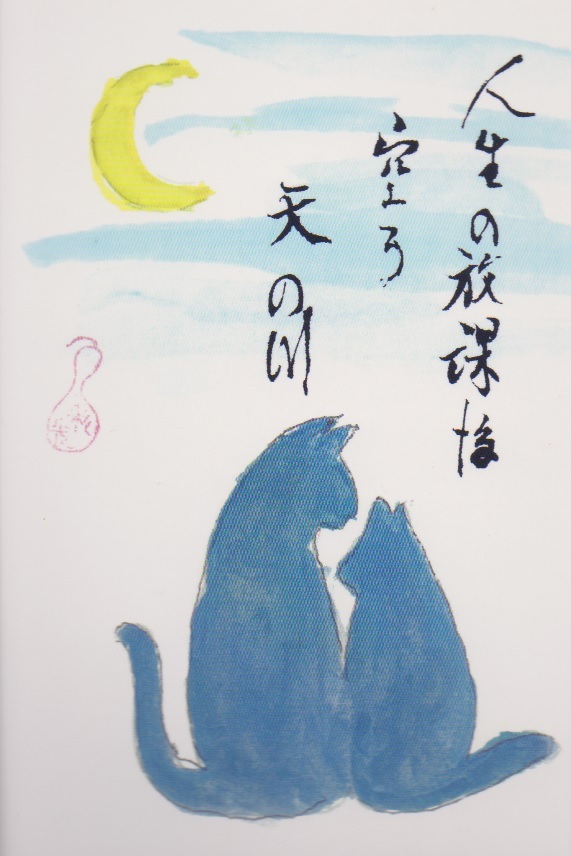 人生の放課後
空
天の川